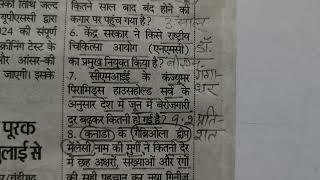 कितने साल बाद बंद होने की
कगार पर पहुंच गया है?
6. केंद्र सरकार ने किसे राष्ट्रीय
चिकित्सा आयोग (एनएमसी)
का प्रमुख नियुक्त किया है?
7. सीएमआईई के कंज्यूमर
पिरामिड्स हाउसहोल्ड सर्वे के
अनुसार देश में जून में बेरोजगारी
दर बढ़कर कितनी हो गई है?
8. (कनाडा) के (गैब्रिओला द्वीप)
मेलेसी नाम की मुर्गी ने कितनी देर
में छह अक्षरों, संख्याओं और रंगों
की सही पहचान कर नया गिनीज
सको तिथि जल्द
यूपीएससी द्वारा
024 की संपूर्ण
क्रीनिंग टेस्ट के
और आंसर-की
जाएगी। इसके
पूरक
लाई से
डॉ.
गंगा
धर
9.2 प्रति-
शत